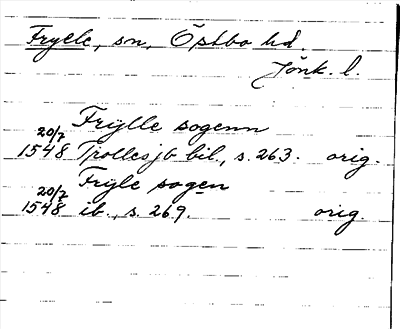 Fryele, sn, Östbo hd.
Jönk. l.
Frÿlle sogenn
20/7 1548 Trollesjb bil., s. 263. orig.
Frÿle sogen
20/7 1548 ib., s. 269. orig.